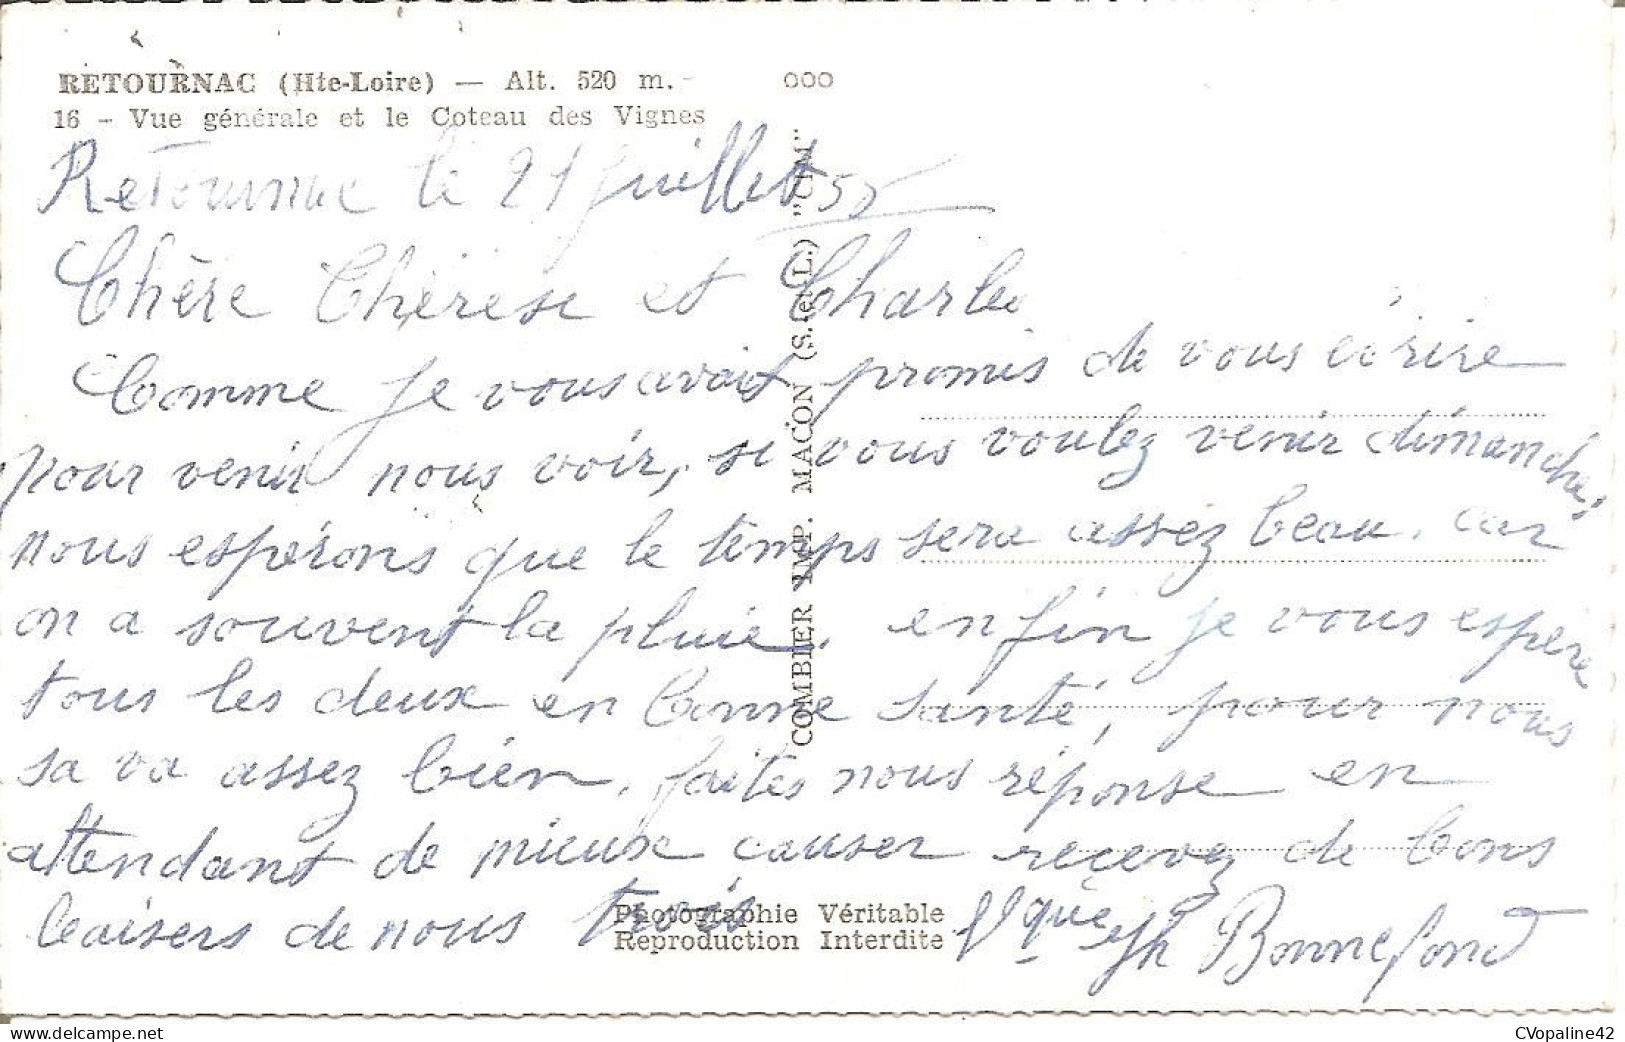 RETOURNAC (Hte-Loire) — Alt. 520 m. - ooo
16 - Vue générale et le Coteau des Vignes
Retournac le 21 Juillet 55
Chère Thérèse et Charles
Comme je vous avait promis de vous écrire
pour venir nous voir, si vous voulez venir dimanche,
nous espérons que le temps sera assez beau. car
on a souvent la pluie. enfin je vous espère
tous les deux en bonne santé, pour nous
sa va assez bien. faites nous réponse en
attendant de mieux causer recevez de bons
baisers de nous trois
Bonnefond
COMBIER IMP. MACON (S.-et-L.) "CIM"
Photographie Véritable
Reproduction Interdite
delcampe.net
CVopaline42